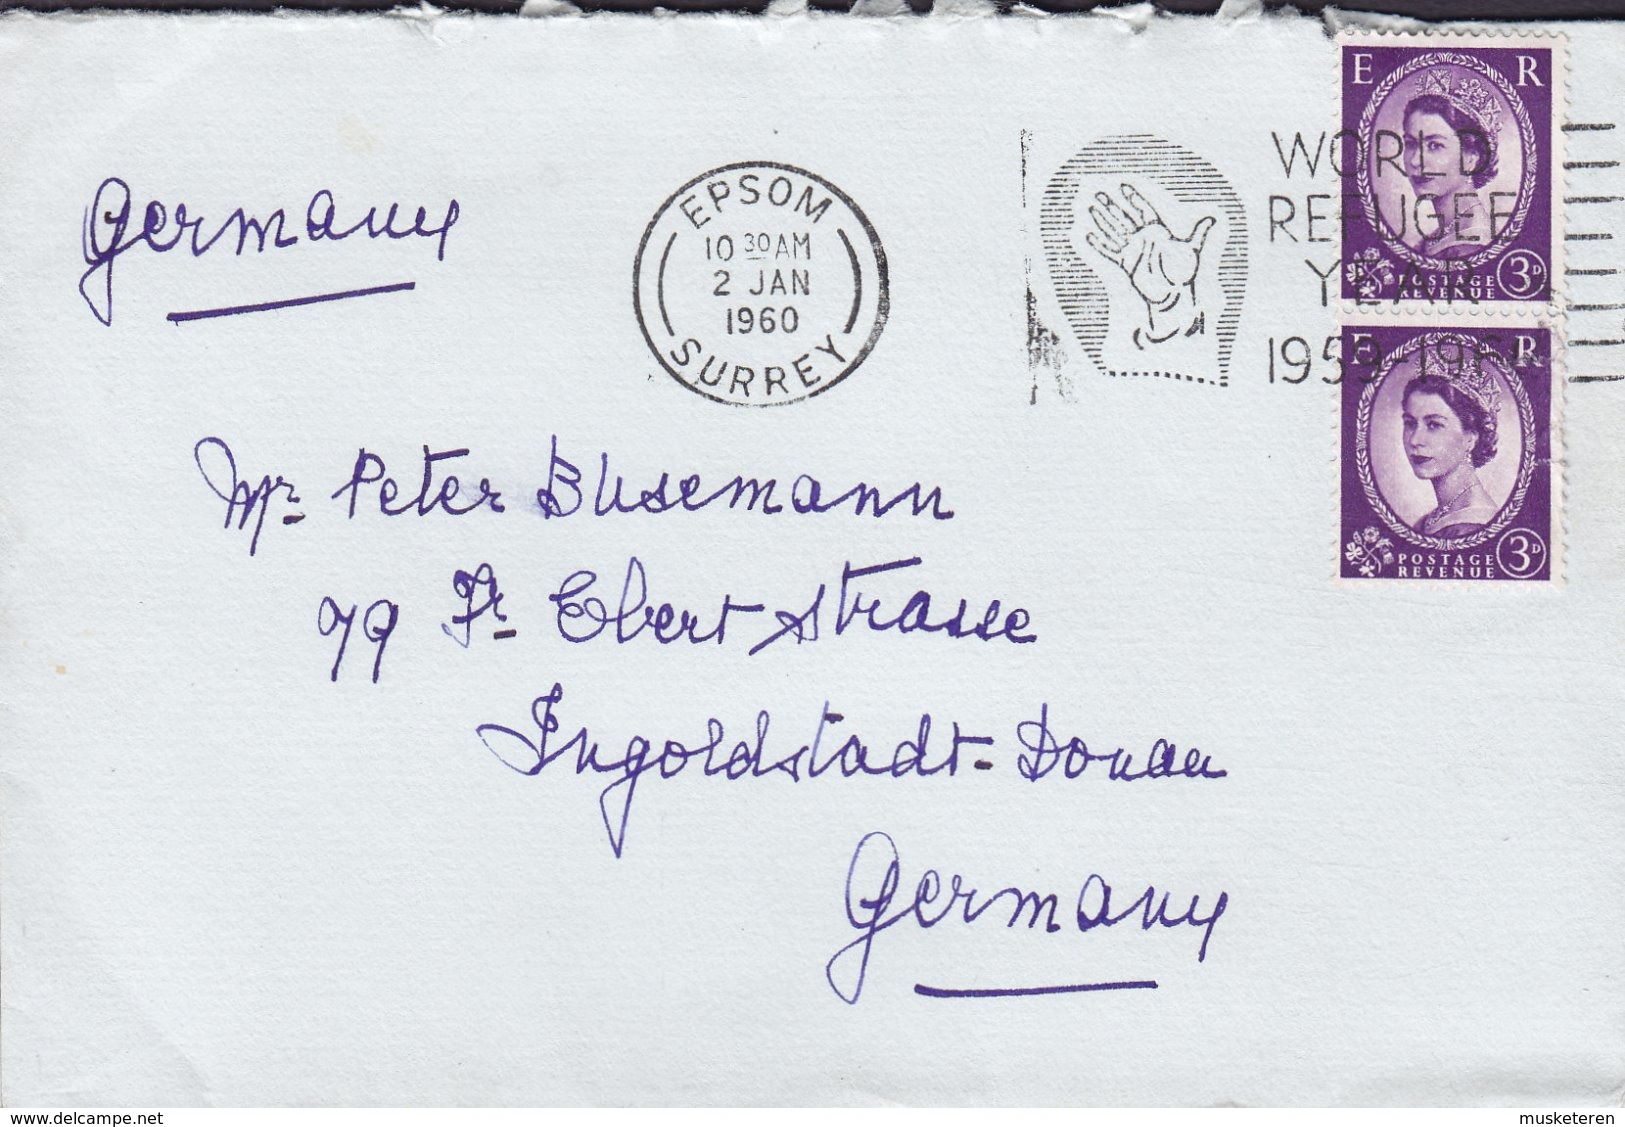 Germany
EPSOM
10 30 AM
2 JAN
1960
SURREY
WORLD
REFUGEE
YEAR
1959-1960
E R
POSTAGE
REVENUE
3D
E R
POSTAGE
REVENUE
3D
Mr. Peter Busemann
79 Fr. Ebert Strasse
Ingoldstadt-Donau
Germany
© delcampe.net
musketeren